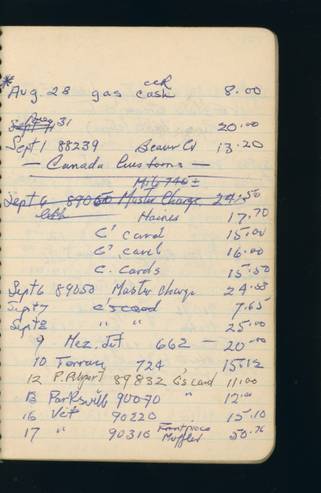 * Aug 28 gas cash 8.00
Aug 31 20.00
Sept 1 88239 Beaver Cr 13.20
— Canada Customs —
Sept 6 89050 Master Charge 24.50
Haines 17.70
C' card 15.00
G' card 16.00
C. Cards 15.50
Sept 6 89050 Master Charge 24.53
Sept 7 C's card 7.65
Sept 8 " " 25.00
9 Mez. Jct 662 — 20.00
10 Terrace 724 15.12
12 89832 C's card 11.00
13 Parksville 90070 " 12.00
16 Vet 90220 15.10
17 " 90316 Muffler 50.76